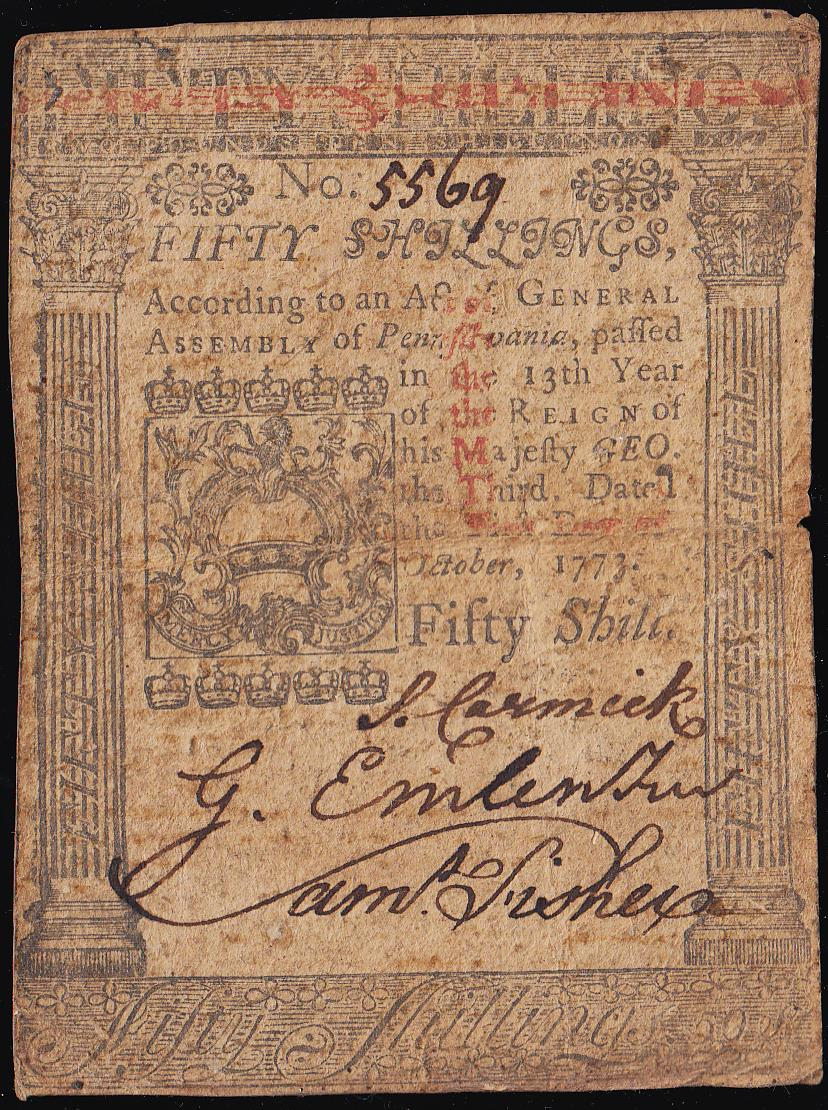 FIFTY SHILLINGS
No. 5569
FIFTY SHILLINGS,
According to an Act of GENERAL
ASSEMBLY of Pennſilvania, paſſed
in the 13th Year
of the REIGN of
his Majeſty GEO.
the Third. Dated
the Firſt Day of
October, 1773.
MERCY JUSTICE
Fifty Shill.
S. Carmick
G. Emlen Jur
Saml. Fisher
Fifty Shillings. 50 s.